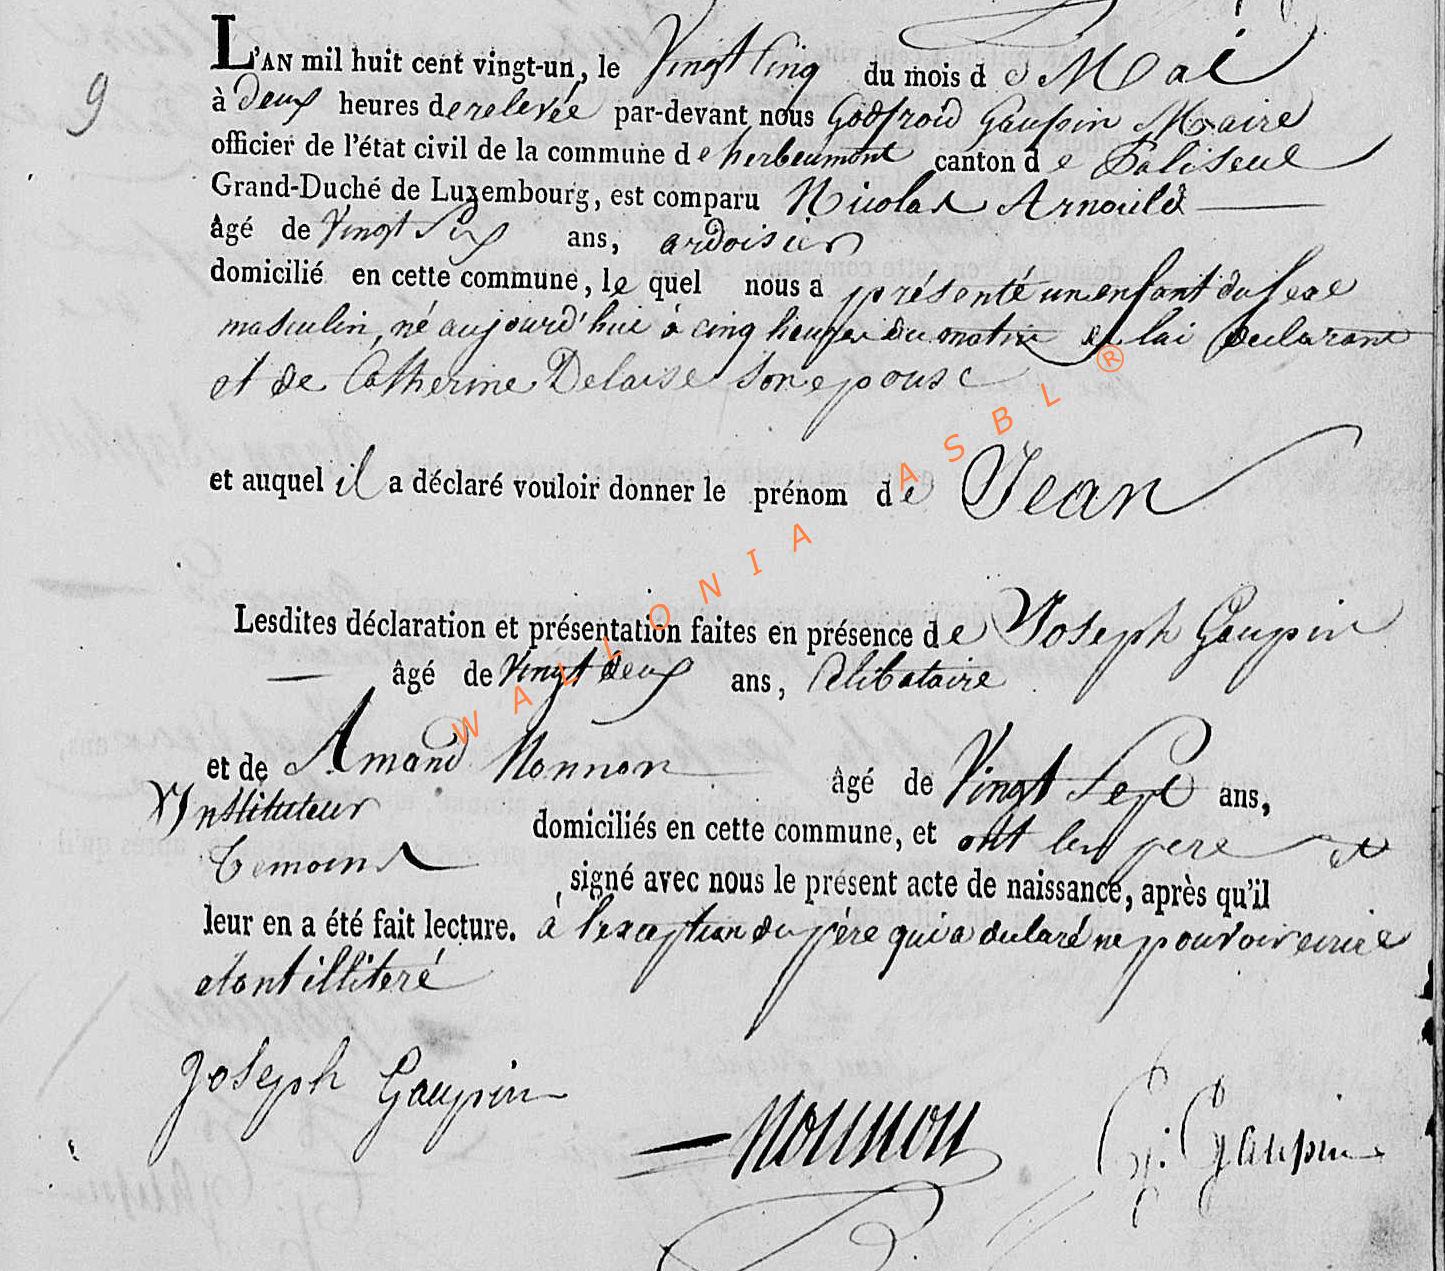 9
L'AN mil huit cent vingt-un, le Vingt Cinq du mois de Mai
à deux heures de relevée par-devant nous Godfroid Gaupin Maire
officier de l'état civil de la commune de herbeumont canton de Paliseul
Grand-Duché de Luxembourg, est comparu Nicolas Arnould
âgé de Vingt Six ans, ardoisier
domicilié en cette commune, le quel nous a présenté un enfant du Sexe
masculin, né aujourd'hui à cinq heures du matin de lui declarant
et de Catherine Delaise son epouse
et auquel il a déclaré vouloir donner le prénom de Jean
Lesdites déclaration et présentation faites en présence de Joseph Gaupin
âgé de Vingt deux ans, Celibataire
et de Amand Nonnon âgé de Vingt Sept ans,
Instituteur domiciliés en cette commune, et ont les pere et
temoins signé avec nous le présent acte de naissance, après qu'il
leur en a été fait lecture. à l'exception du père qui a declaré ne pouvoir ecrire
etant illiteré
Joseph Gaupin
Nonnon
G. Gaupin
WALLONIA ASBL ®